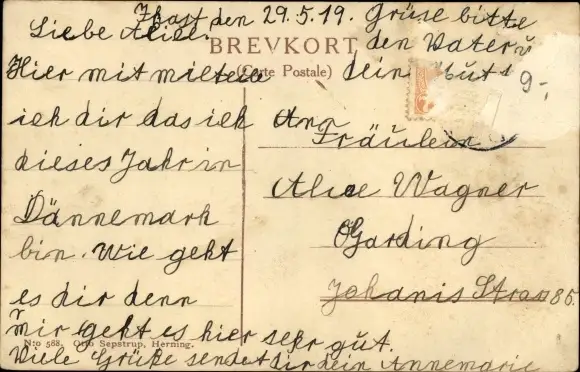 Ikast den 29.5.19. Grüse bitte
Liebe Alice.
den Vater u
deine Mutt
BREVKORT
(Carte Postale)
9-,
Hier mit mitteile
ich dir das ich
dieses Jahr in
Dännemark
bin. Wie geht
es dir denn
mir geht es hier sehr gut.
Viele Grüße sendet dir dein Annemarie
Ann
Fräulein
Alice Wagner
Garding
Johanis Strass 86.
N:o 588. Otto Sepstrup, Herning.